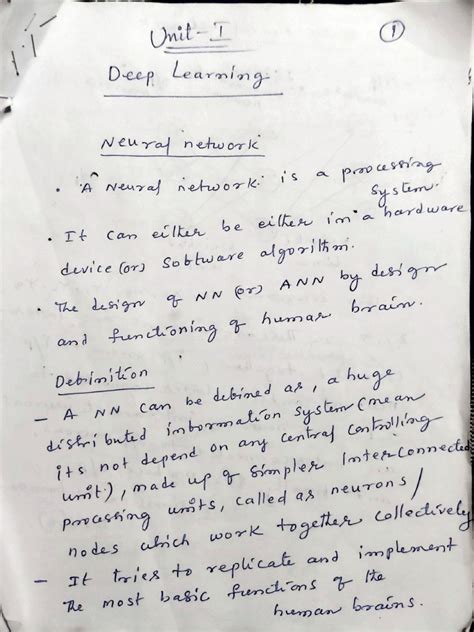 Unit-I
1
Deep Learning
Neural network
• A Neural network is a processing
system.
• It can either be either in a hardware
device (or) Sobtware algorithm.
• The design of NN (or) ANN by design
and functioning of human brain.
Debinition
- A NN can be debined as, a huge
distributed inbormation system (mean
its not depend on any central controlling
unit), made up of simpler Interconnected
processing units, called as neurons/
nodes which work together collectively
- It tries to replicate and implement
the most basic functions of the
human brains.